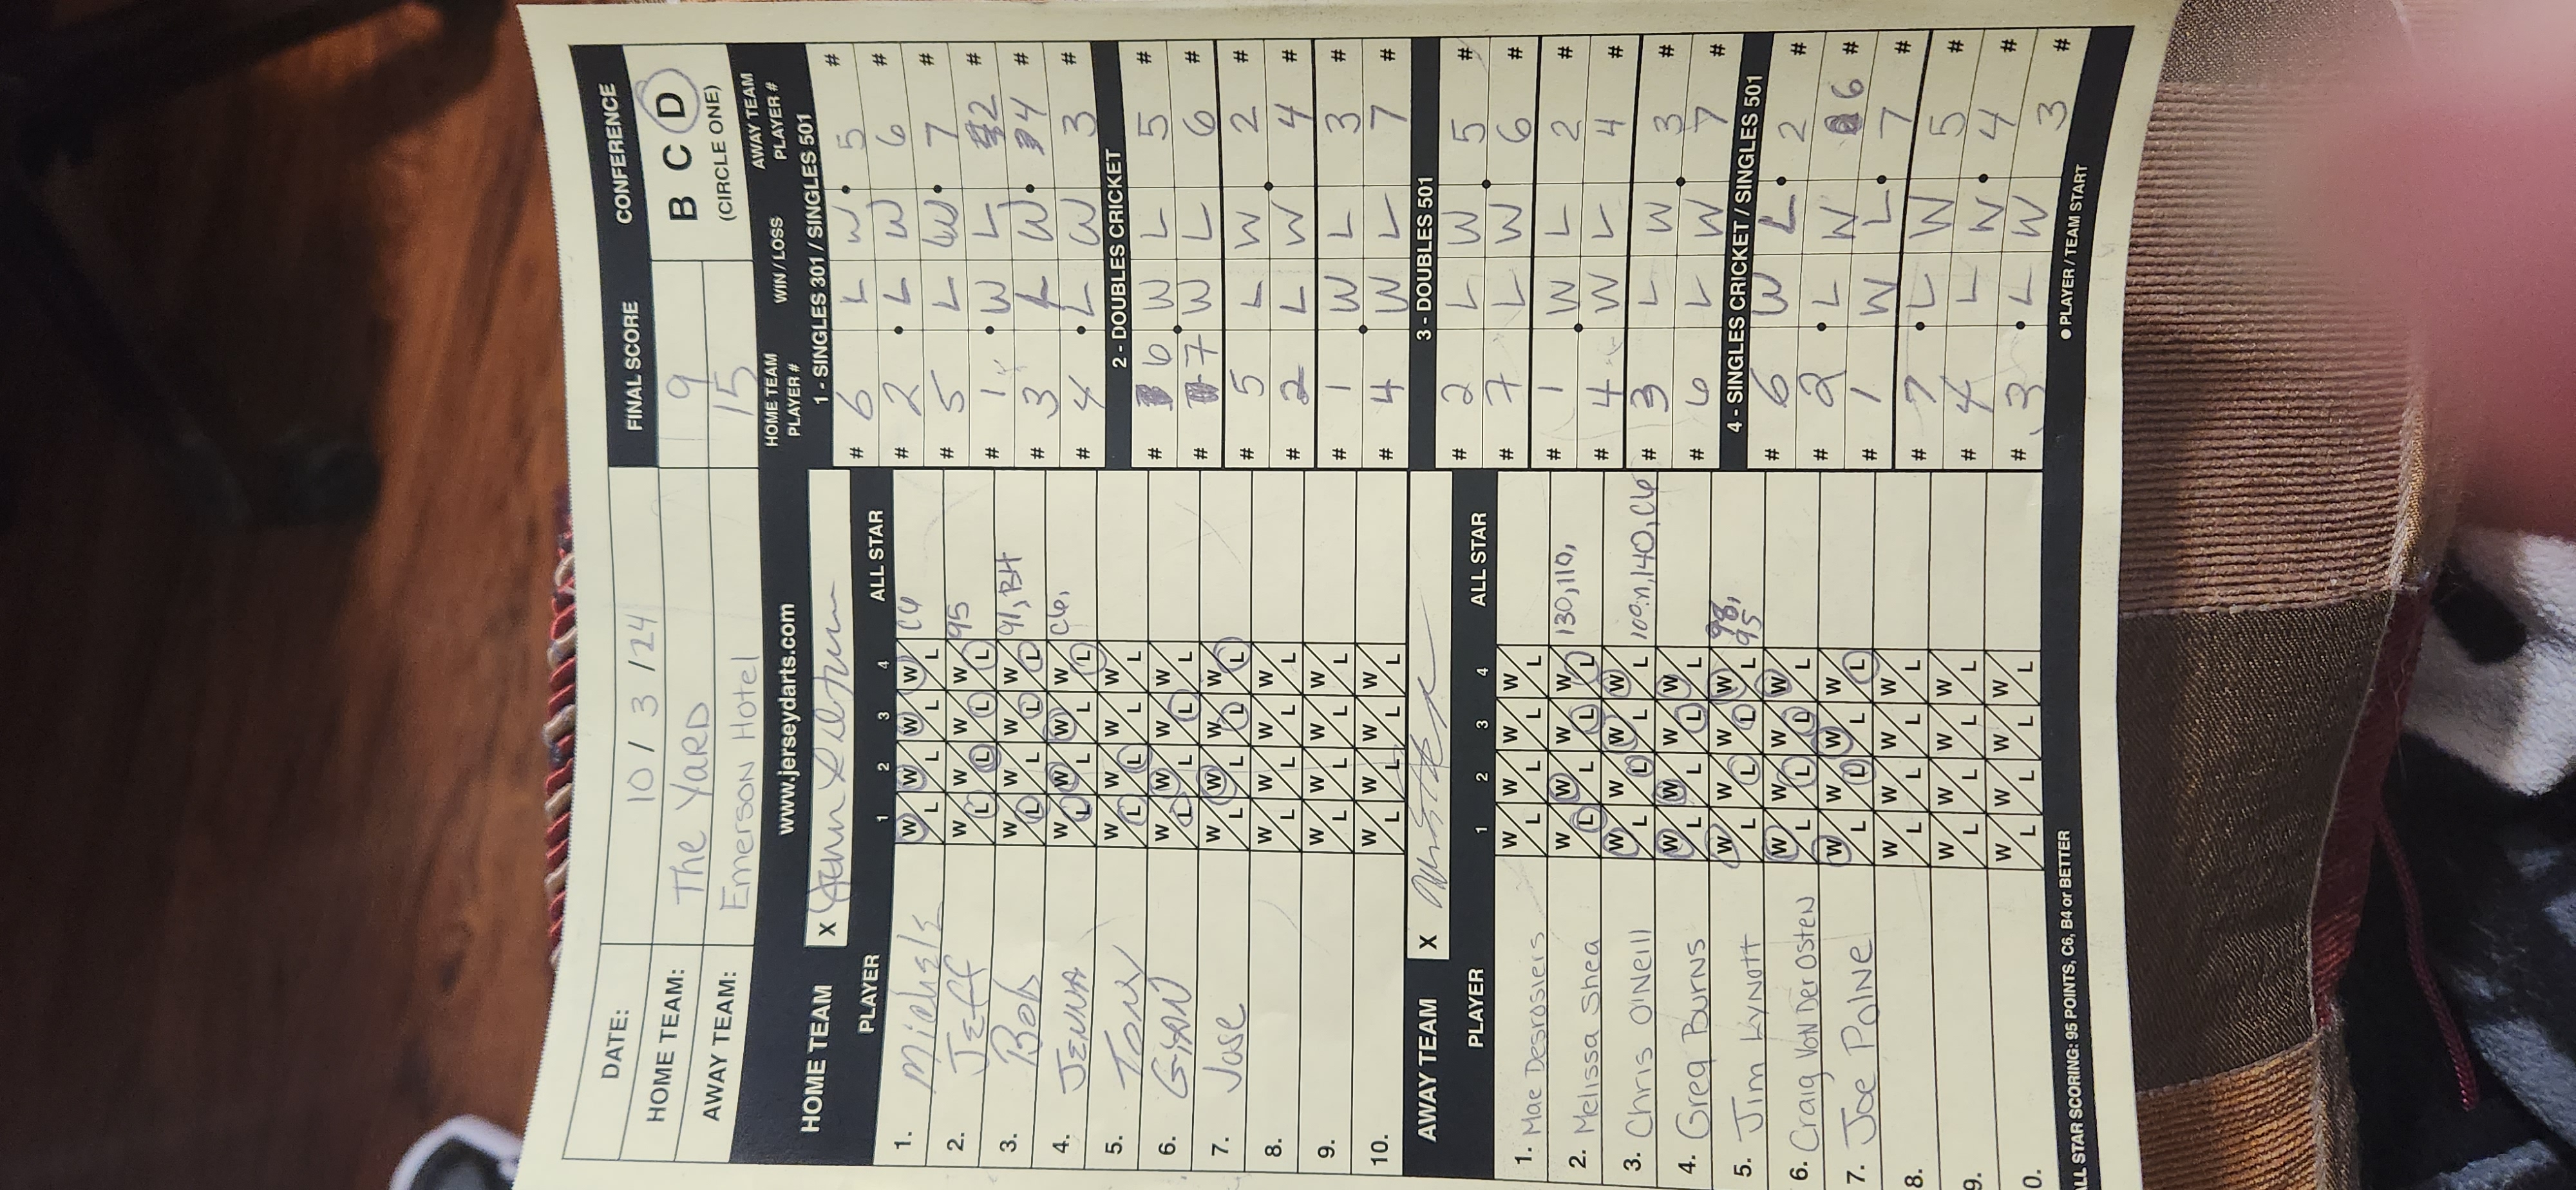 DATE: 10 / 3 / 24 FINAL SCORE CONFERENCE
HOME TEAM: The YARD 9 B C D
AWAY TEAM: Emerson Hotel 15 (CIRCLE ONE)
www.jerseydarts.com
HOME TEAM X
PLAYER 1 2 3 4 ALL STAR
1. Michele W L W L W L W L C6
2. JEFF W L W L W L W L 95
3. Bob W L W L W L W L 91, BH
4. JENNA W L W L W L W L C6,
5. TONY W L W L W L W L
6. W L W L W L W L
7. Jose W L W L W L W L
8. W L W L W L W L
9. W L W L W L W L
10. W L W L W L W L
AWAY TEAM X
PLAYER 1 2 3 4 ALL STAR
1. Mae Desrosiers W L W L W L W L
2. Melissa Shea W L W L W L W L 130, 110,
3. Chris O'Neill W L W L W L W L 140, C6
4. Greg Burns W L W L W L W L
5. Jim Lynott W L W L W L W L 98, 95
6. Craig Von Der Osten W L W L W L W L
7. Joe Paine W L W L W L W L
8. W L W L W L W L
9. W L W L W L W L
0. W L W L W L W L
ALL STAR SCORING: 95 POINTS, C6, B4 or BETTER
HOME TEAM PLAYER # WIN / LOSS AWAY TEAM PLAYER #
1 - SINGLES 301 / SINGLES 501
# 6 L W 5 #
# 2 L W 6 #
# 5 L W 7 #
# 1 W L 2 #
# 3 L W 4 #
# 4 L W 3 #
2 - DOUBLES CRICKET
# 6 W L 5 #
# 7 W L 6 #
# 5 L W 2 #
# 2 L W 4 #
# 1 W L 3 #
# 4 W L 7 #
3 - DOUBLES 501
# 2 L W 5 #
# 7 L W 6 #
# 1 W L 2 #
# 4 W L 4 #
# 3 L W 3 #
# 6 L W 7 #
4 - SINGLES CRICKET / SINGLES 501
# 6 W L 2 #
# 2 L W 6 #
# 1 W L 7 #
# 7 L W 5 #
# 4 L W 4 #
# 3 L W 3 #
● PLAYER / TEAM START